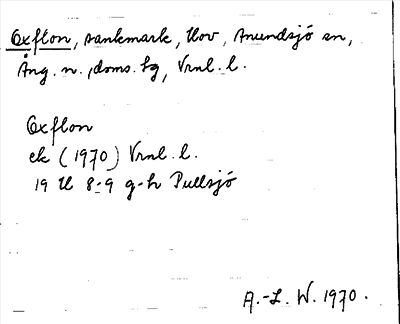 Oxflon, sankmark, Hov, Anundsjö sn,
Ång. n., doms. hg, Vrnl. l.
Oxflon
ek (1970) Vrnl. l.
19 H 8-9 g-h Pullsjö
A.-L. W. 1970.